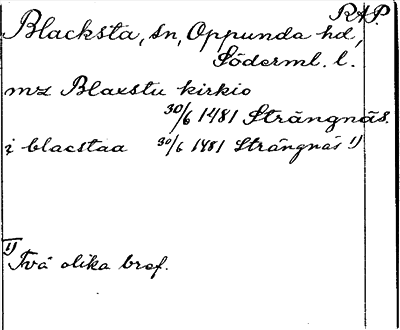 RAP.
Blacksta, sn, Oppunda hd,
Söderml. l.
mz Blaxstu kirkio
30/6 1481 Strängnäs.
i blacstaa 30/6 1481 Strängnäs 1)
1) Två olika bref.